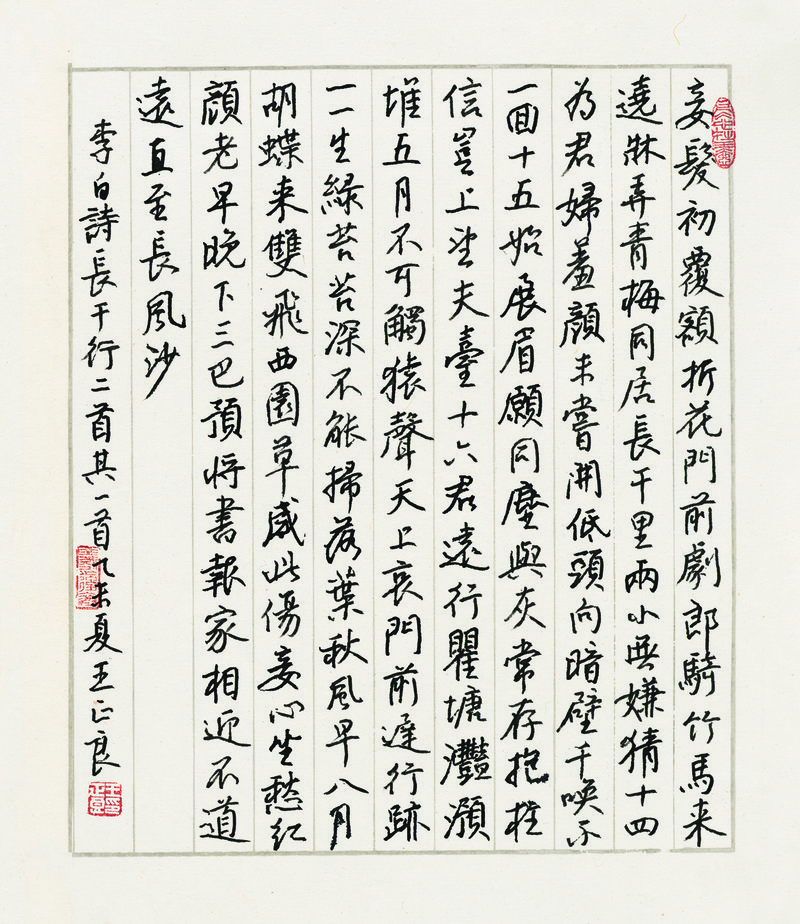 妾髮初覆額折花門前劇郎騎竹馬来
遶牀弄青梅同居長干里兩小無嫌猜十四
為君婦羞顔未嘗開低頭向暗壁千喚不
一回十五始展眉願同塵與灰常存抱柱
信豈上望夫臺十六君遠行瞿塘灩澦
堆五月不可觸猿聲天上哀門前遲行跡
一一生緑苔苔深不能掃落葉秋風早八月
胡蝶来雙飛西園草感此傷妾心坐愁紅
顔老早晚下三巴預将書報家相迎不道
遠直至長風沙
李白詩長干行二首其一首乙未夏王正良